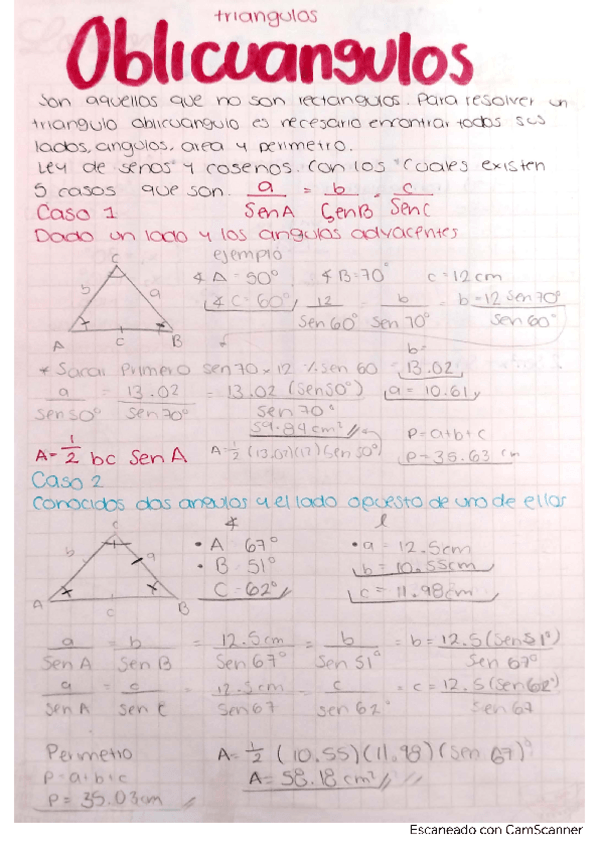 triangulos
Oblicuangulos
Son aquellos que no son rectangulos. Para resolver un
triangulo oblicuangulo es necesario encontrar todos sus
lados, angulos, area y perimetro.
Ley de senos y cosenos. Con los cuales existen
5 casos que son. a/SenA = b/SenB = c/SenC
Caso 1
Dado un lado y los angulos adyacentes
ejemplo
∡A = 50° ∡B = 70° c = 12 cm
∡C = 60° 12/Sen 60° = b/Sen 70° = b = 12 Sen 70°/Sen 60°
C
b a
A c B
* Sacar Primero sen 70 x 12 % sen 60 b = 13.02
a/Sen 50° = 13.02/Sen 70° = 13.02 (Sen 50°)/Sen 70° a = 10.61
59.84 cm²
A = 1/2 bc Sen A
A = 1/2 (13.02)(12) Sen 50°
P = a+b+c
P = 35.63 cm
Caso 2
Conocidos dos angulos y el lado opuesto de uno de ellos
C
b a
A c B
∡ l
• A 67° • a = 12.5cm
• B = 51° b = 10.55cm
C = 62° c = 11.98cm
a/Sen A = b/Sen B = 12.5 cm/Sen 67° = b/Sen 51° = b = 12.5 (Sen 51°)/Sen 67°
a/Sen A = c/Sen C = 12.5 cm/Sen 67 = c/sen 62° = c = 12.5 (Sen 62°)/Sen 67
Perimetro
P = a+b+c
P = 35.03cm
A = 1/2 (10.55)(11.98)(Sen 67)°
A = 58.18 cm²
Escaneado con CamScanner